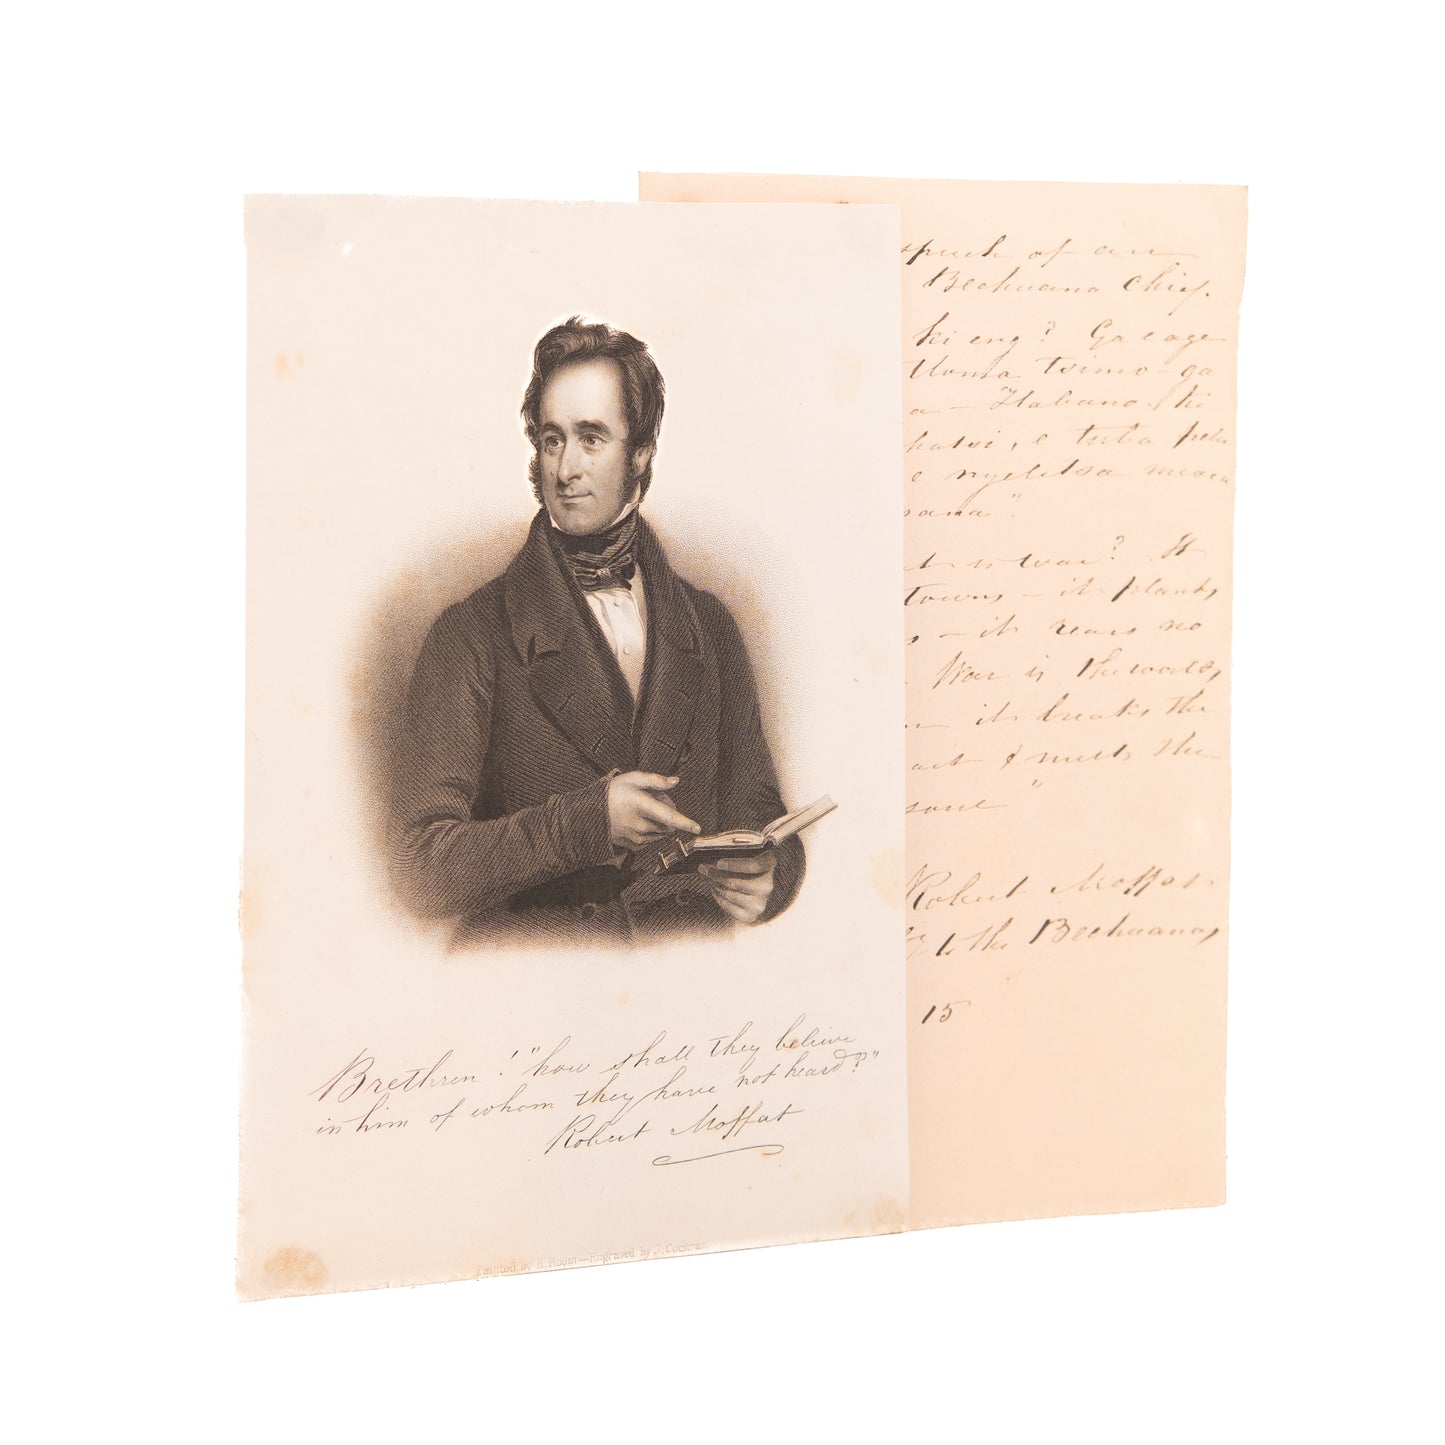 Brethren! "how shall they believe
in him of whom they have not heard?"
Robert Moffat
Painted by H. Room—Engraved by J. Cochran
speech of an
Bechuana Chief.
ki eng? Ga e age
tsimo - ga
a -
e tuba
e nyeletsa
is war? It
towns - it plants
- it rears no
War is the worlds
it breaks the
& melts the
Robert Moffat
to the Bechuanas
15